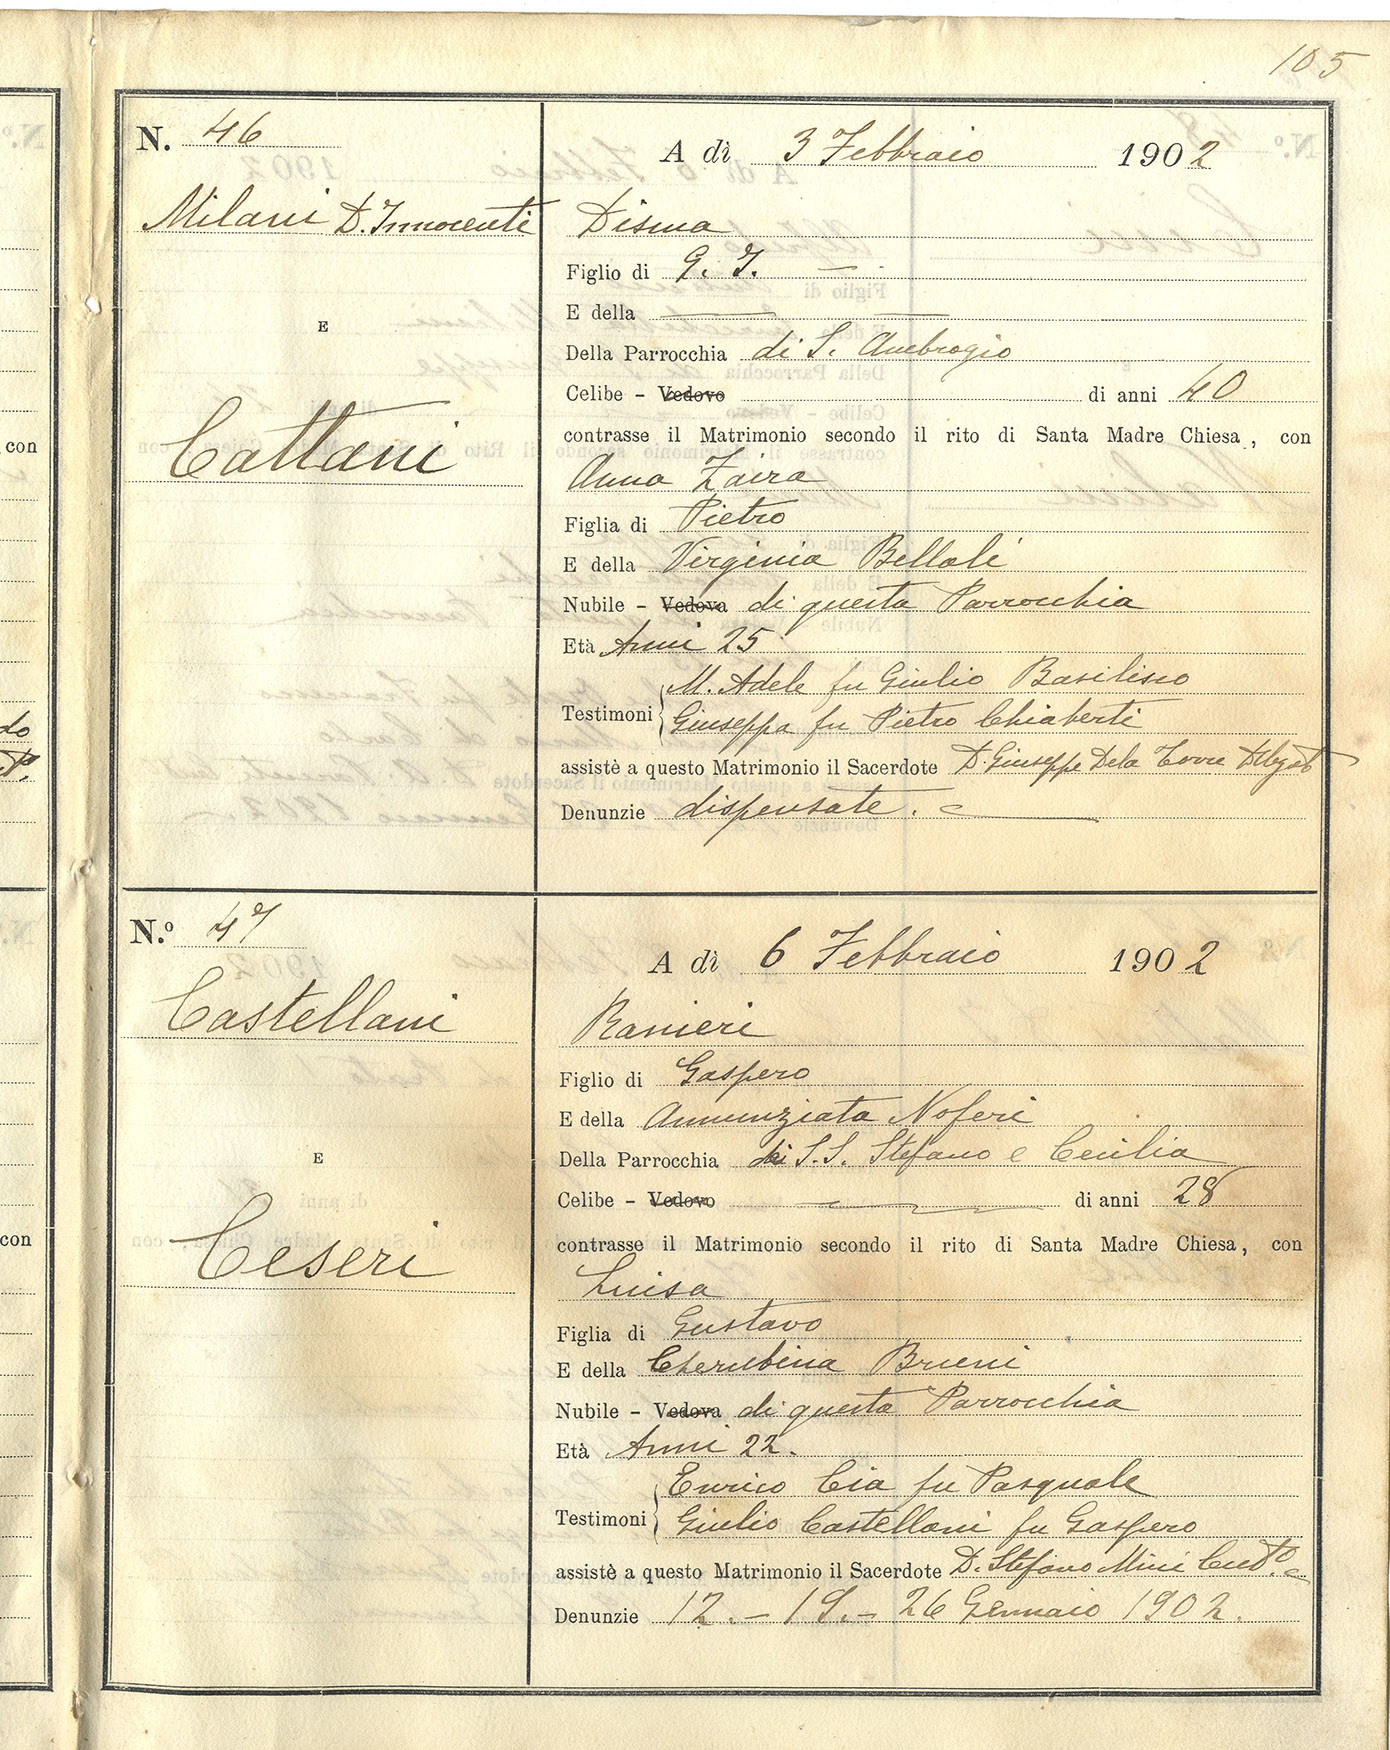 105
con
do
con
N. 46
A dì 3 Febbraio 1902
Milani D. Innocenti
Disma
Figlio di G. I. —
E della
E
Della Parrocchia di S. Ambrogio
Celibe - Vedovo di anni 40
contrasse il Matrimonio secondo il rito di Santa Madre Chiesa, con
Cattani
Anna Zaira
Figlia di Pietro
E della Virginia Bellole
Nubile - Vedova di questa Parrocchia
Età Anni 25
M. Adele fu Giulio Basilisco
Testimoni
Giuseppa fu Pietro Chiaberti
assistè a questo Matrimonio il Sacerdote D. Giuseppe Dela Torre
Denunzie dispensate.
N.º 47
A dì 6 Febbraio 1902
Castellani
Ranieri
Figlio di Gaspero
E della Annunziata Noferi
E
Della Parrocchia dei S.S. Stefano e Cecilia
Celibe - Vedovo di anni 28
contrasse il Matrimonio secondo il rito di Santa Madre Chiesa, con
Ceseri
Luisa
Figlia di Gustavo
E della Cherubina Brueni
Nubile - Vedova di questa Parrocchia
Età Anni 22.
Enrico Cia fu Pasquale
Testimoni
Giulio Castellani fu Gaspero
assistè a questo Matrimonio il Sacerdote D. Stefano Mini
Denunzie 12. - 19. - 26 Gennaio 1902.